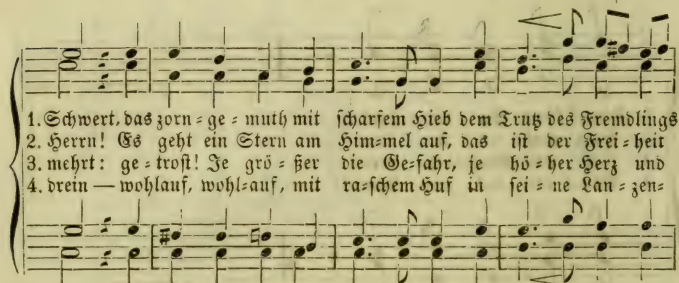 1. Schwert, das zorn⸗ge⸗muth mit scharfem Hieb dem Trutz des Fremdlings
2. Herrn! Es geht ein Stern am Him⸗mel auf, das ist der Frei⸗heit
3. mehrt: ge⸗trost! Je grö⸗ßer die Ge⸗fahr, je hö⸗her Herz und
4. drein — wohlauf, wohl⸗auf, mit ra⸗schem Huf in sei⸗ne Lan⸗zen⸗